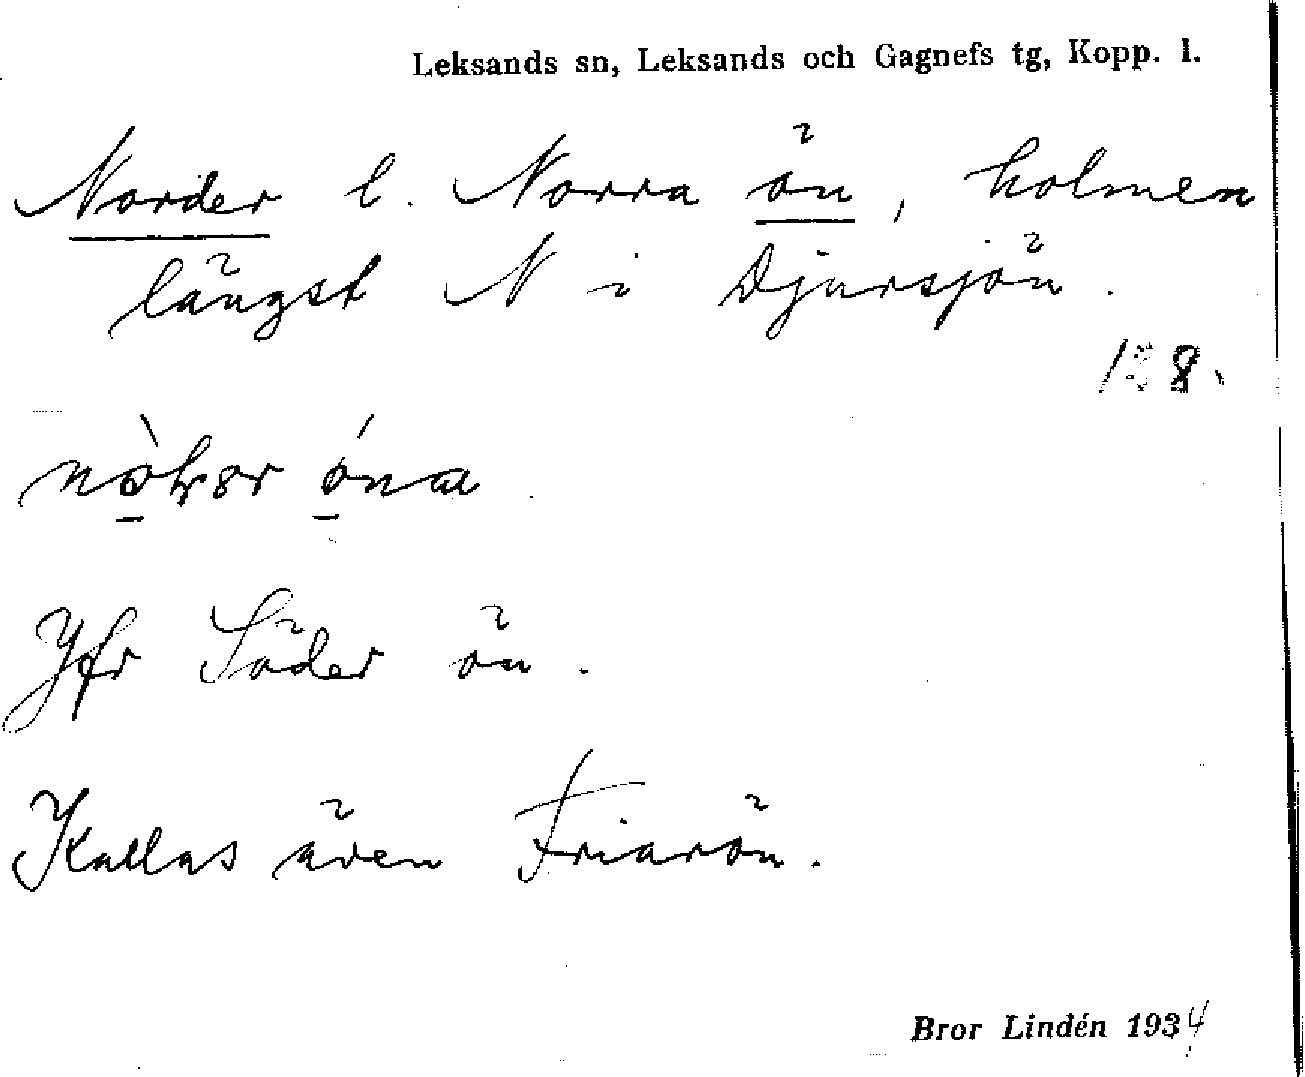 Leksands sn, Leksands och Gagnefs tg, Kopp. l.
Norder l. Norra ön, holmen
längst N i Djursjön.
Jfr Söder ön.
Kallas även Friarön.
Bror Lindén 1934